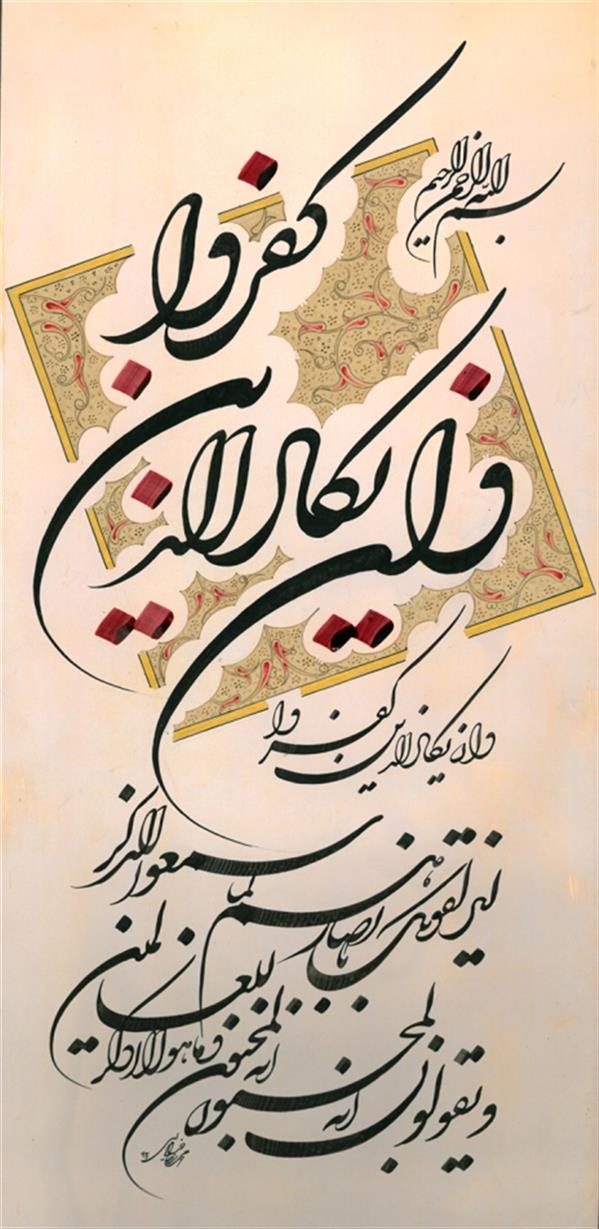 بسم الله الرحمن الرحیم
وان یکاد الذین
کفروا
وان یکاد الذین کفروا
لیزلقونک بابصارهم لما سمعوا الذکر
ویقولون انه لمجنون
وما هو الا ذکر للعالمین